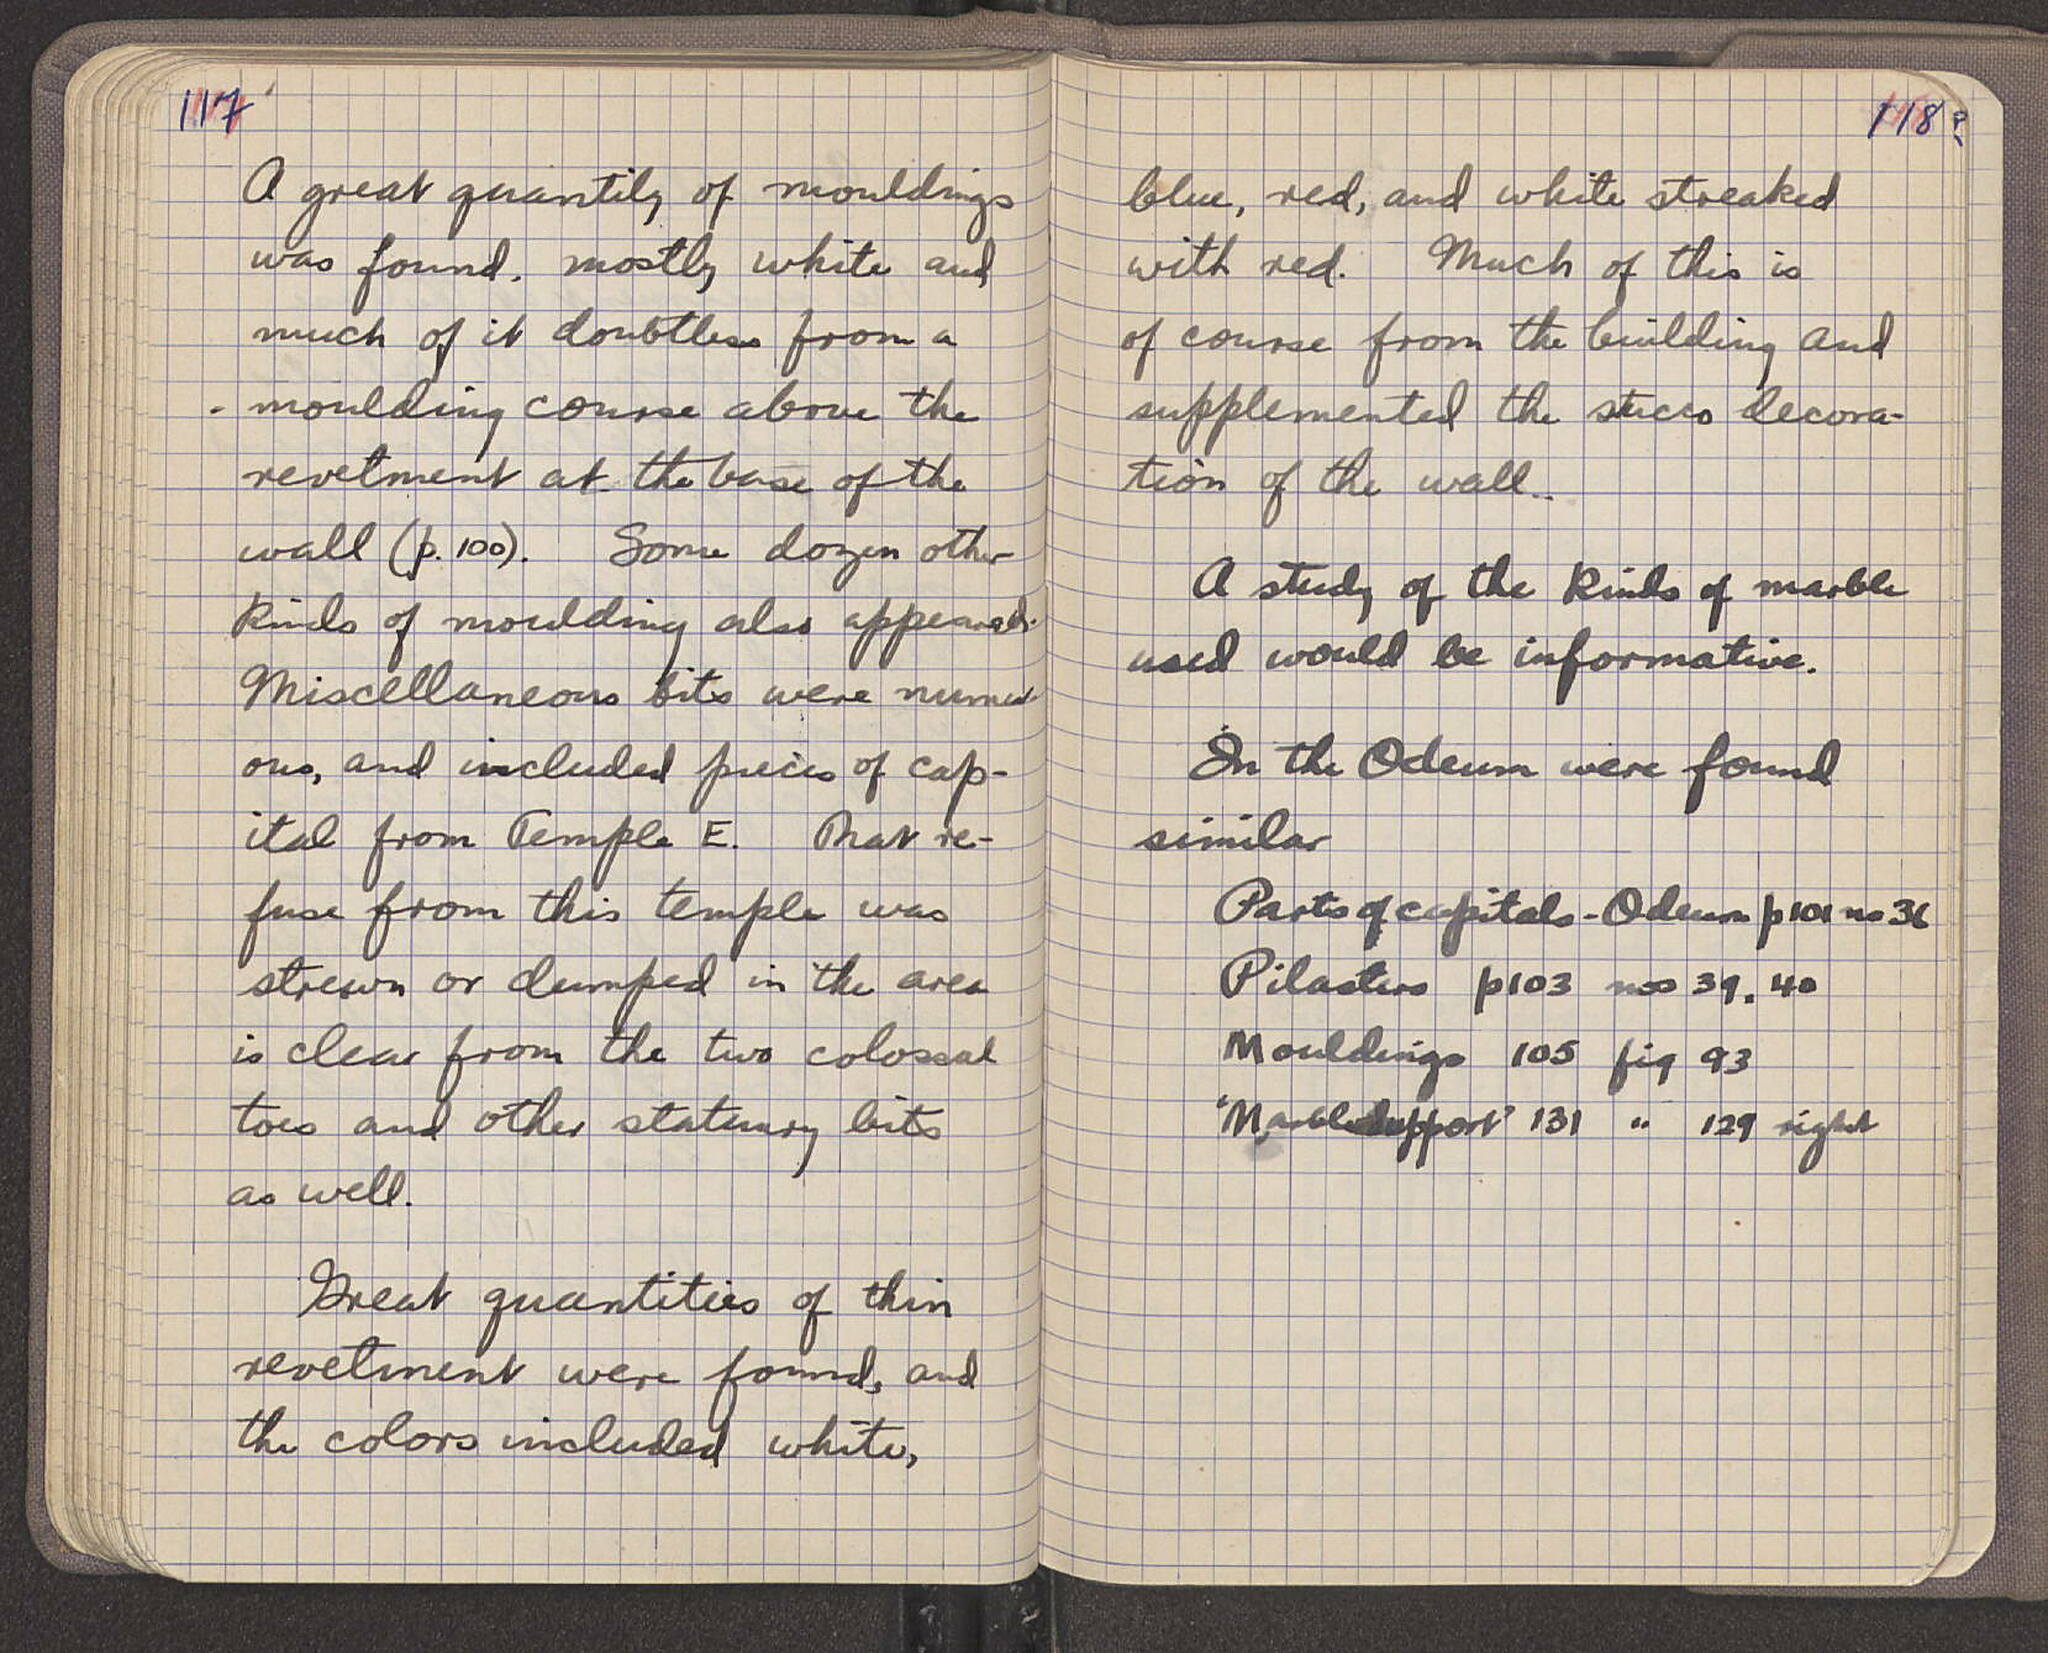 117
A great quantity of mouldings
was found, mostly white and
much of it doubtless from a
moulding course above the
revetment at the base of the
wall (p. 100). Some dozen other
kinds of moulding also appeared.
Miscellaneous bits were numer-
ous, and included pieces of cap-
ital from Temple E. That re-
fuse from this temple was
strewn or dumped in the area
is clear from the two colossal
toes and other statuary bits
as well.
Great quantities of thin
revetment were found, and
the colors included white,
118?
blue, red, and white streaked
with red. Much of this is
of course from the building and
supplemented the stucco decora-
tion of the wall.
A study of the kinds of marble
used would be informative.
In the Odeum were found
similar
Parts of capitals - Odeum p 101 no 36
Pilasters p 103 nos 39, 40
Mouldings 105 fig 93
'Marble Support' 131 " 129 right